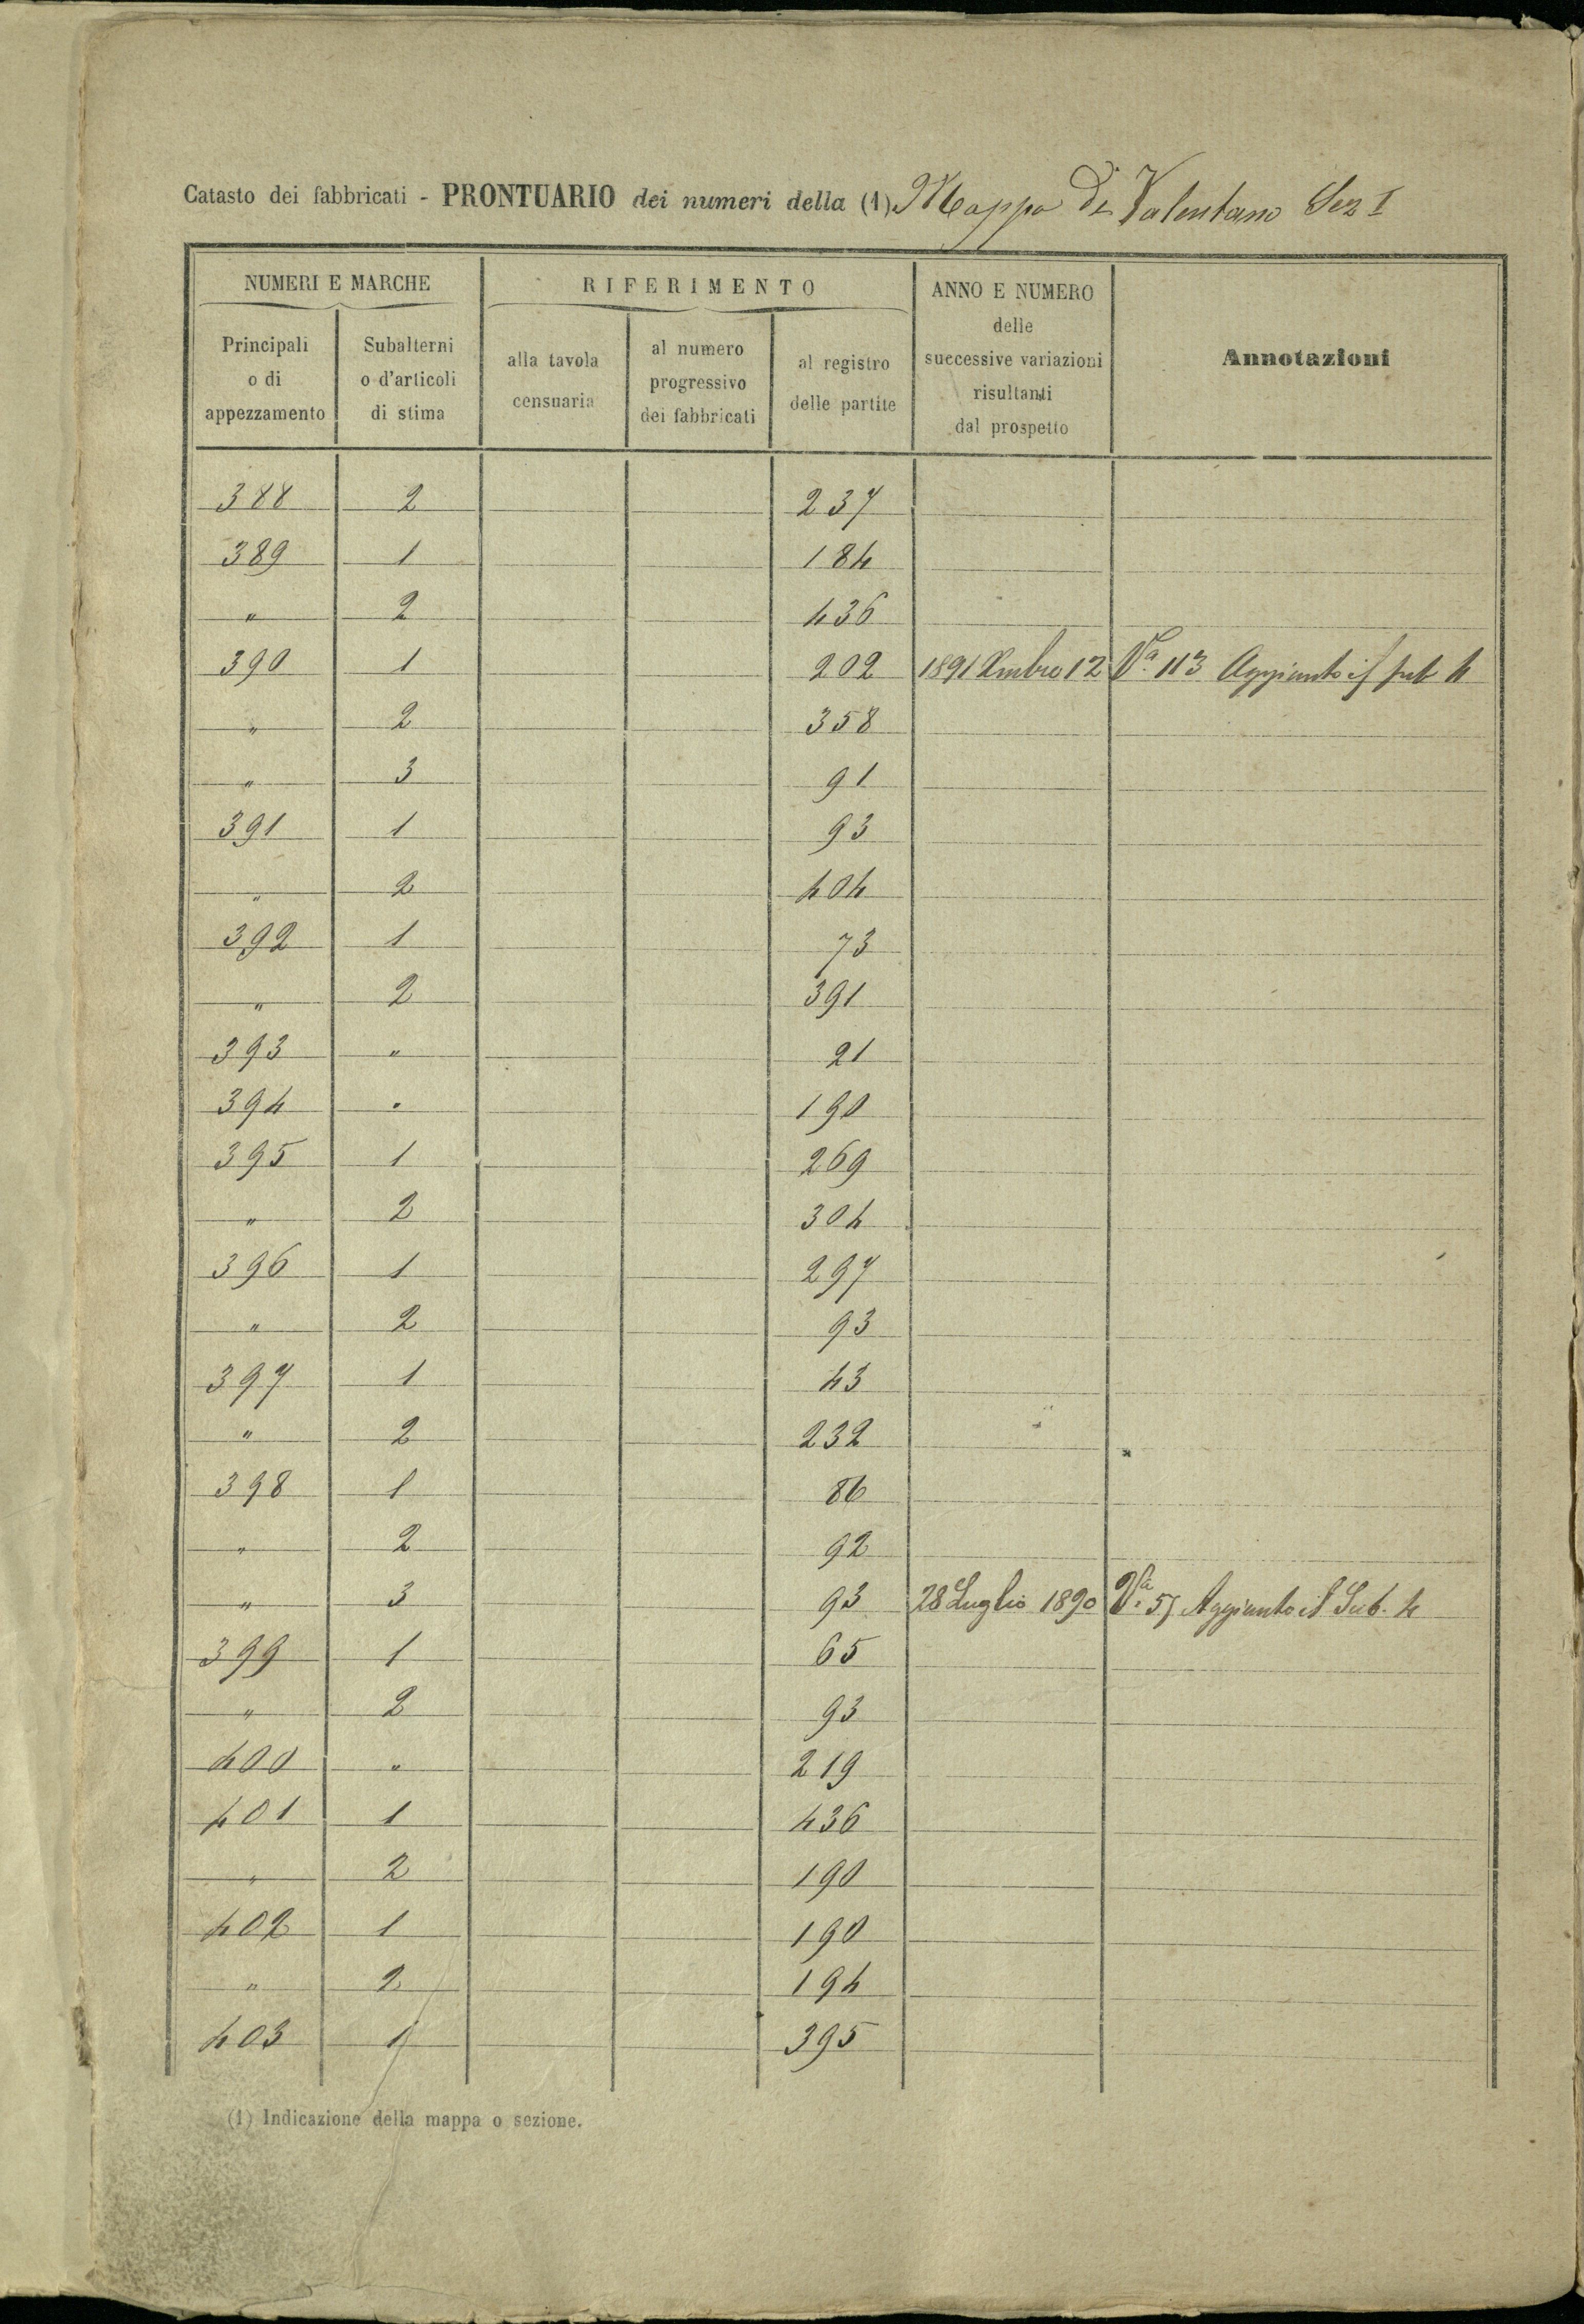 Catasto dei fabbricati - PRONTUARIO dei numeri della (1) Mappa di Valentano Sez I
NUMERI E MARCHE
RIFERIMENTO
ANNO E NUMERO
delle
successive variazioni
risultanti
dal prospetto
Annotazioni
Principali
o di
appezzamento
Subalterni
o d'articoli
di stima
alla tavola
censuaria
al numero
progressivo
dei fabbricati
al registro
delle partite
388 2 237
389 1 184
" 2 436
390 1 202 1891 Xmbre 12 Va 113 Aggiunto il sub 4
" 2 358
" 3 91
391 1 93
" 2 404
392 1 73
" 2 391
393 " 21
394 " 190
395 1 269
" 2 304
396 1 297
" 2 93
397 1 43
" 2 232
398 1 86
" 2 92
" 3 93 28 Luglio 1890 Va 57 Aggiunto il Sub. 4
399 1 65
" 2 93
400 " 219
401 1 436
" 2 190
402 1 190
" 2 194
403 1 395
(1) Indicazione della mappa o sezione.